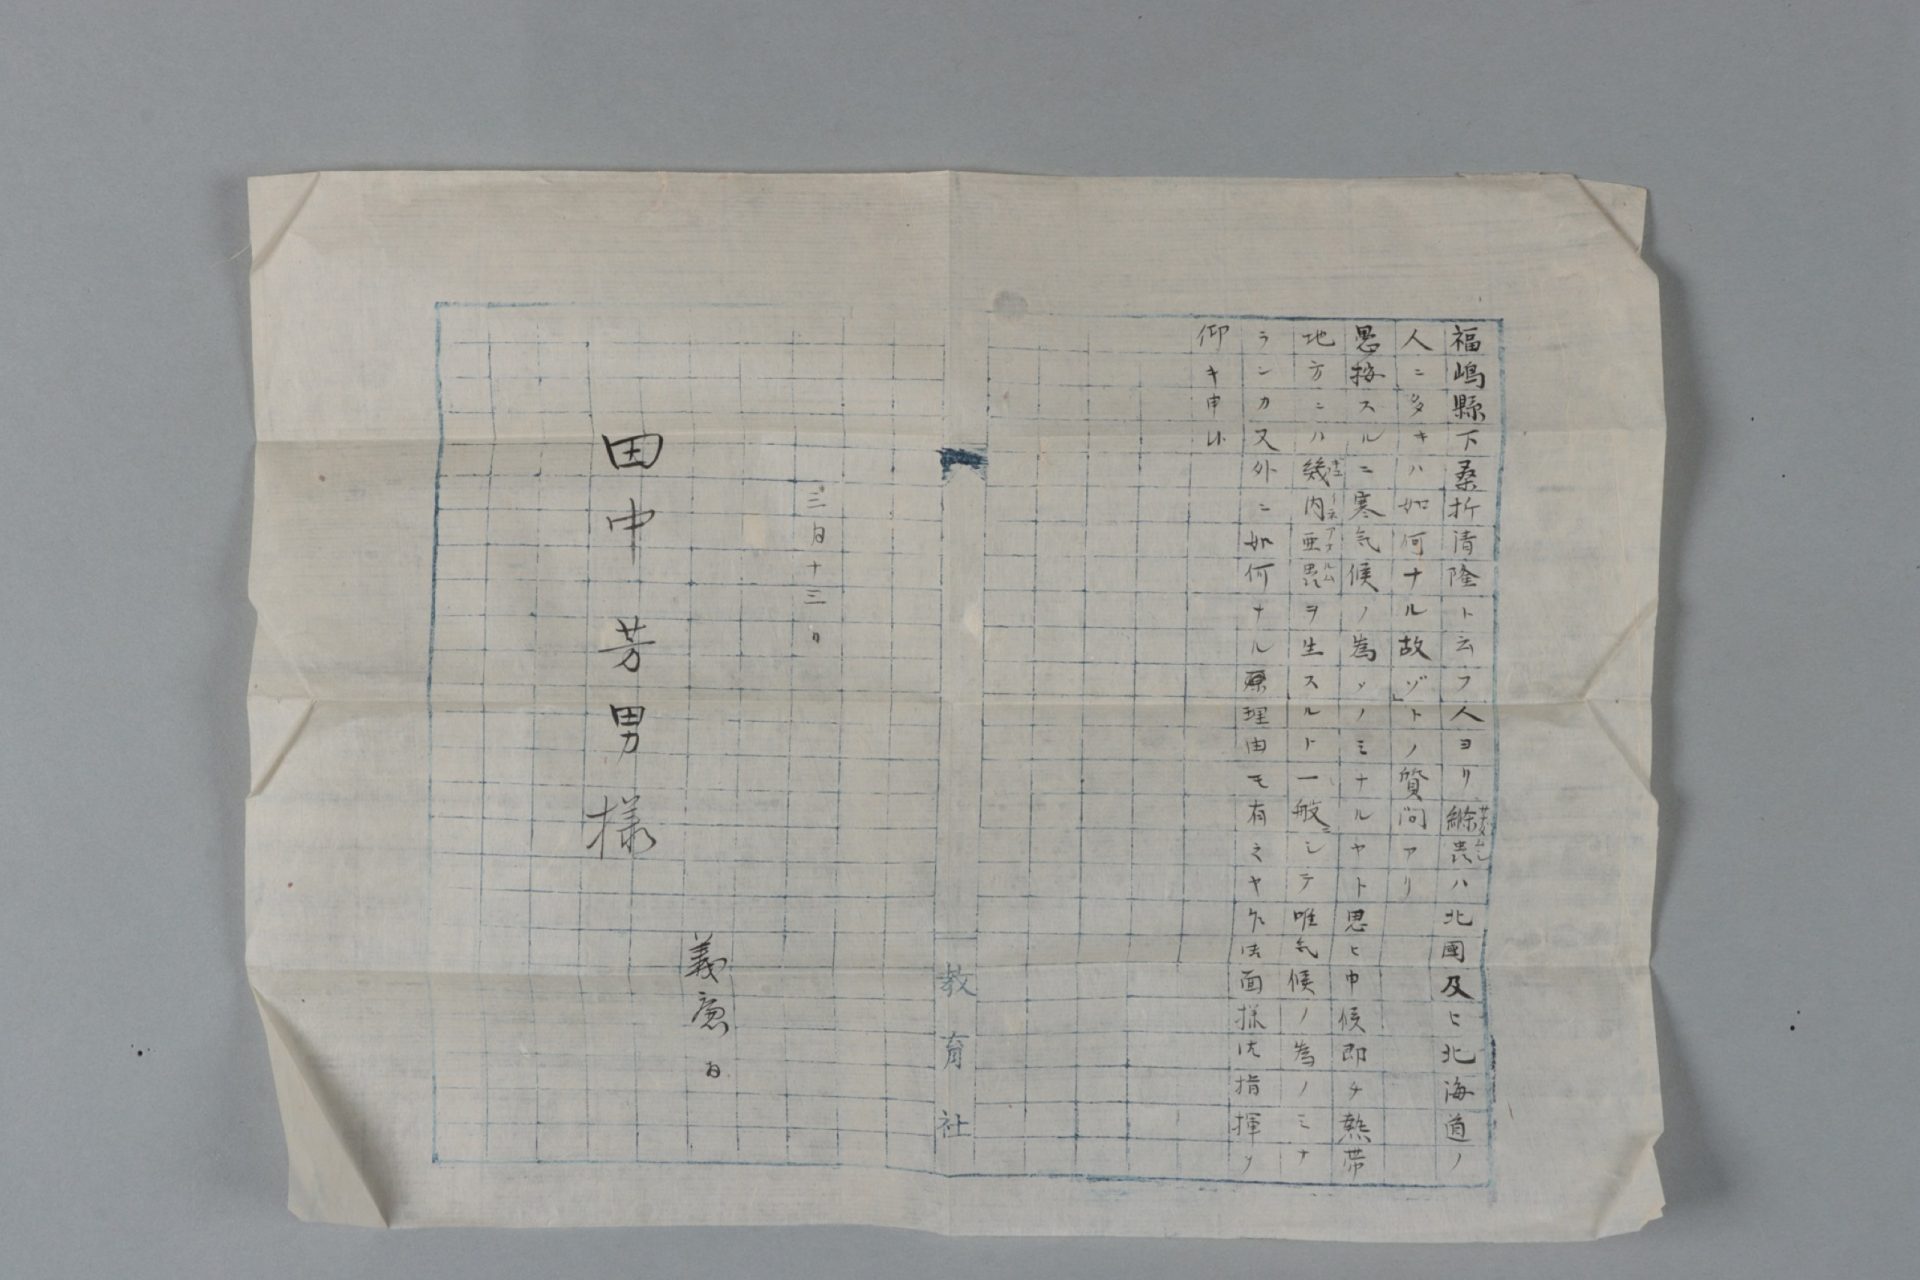 福嶋縣下桑折清隆ト云フ人ヨリ絛虫ハ北國及ヒ北海道ノ
サナダムシ
人ニ多キハ如何ナル故ゾ」トノ質問アリ
愚按スルニ寒気候ノ為メノミナルヤト思ヒ申候即チ熱帯
地方ニハ幾内亜虫ヲ生スルト一般ニシテ唯気候ノ為ノミナ
ランカ又外ニ如何ナル原理由モ有之ヤ乍法面様御指揮ヲ
仰キ申候
三月十三日
義廉
田中芳男様
教育社